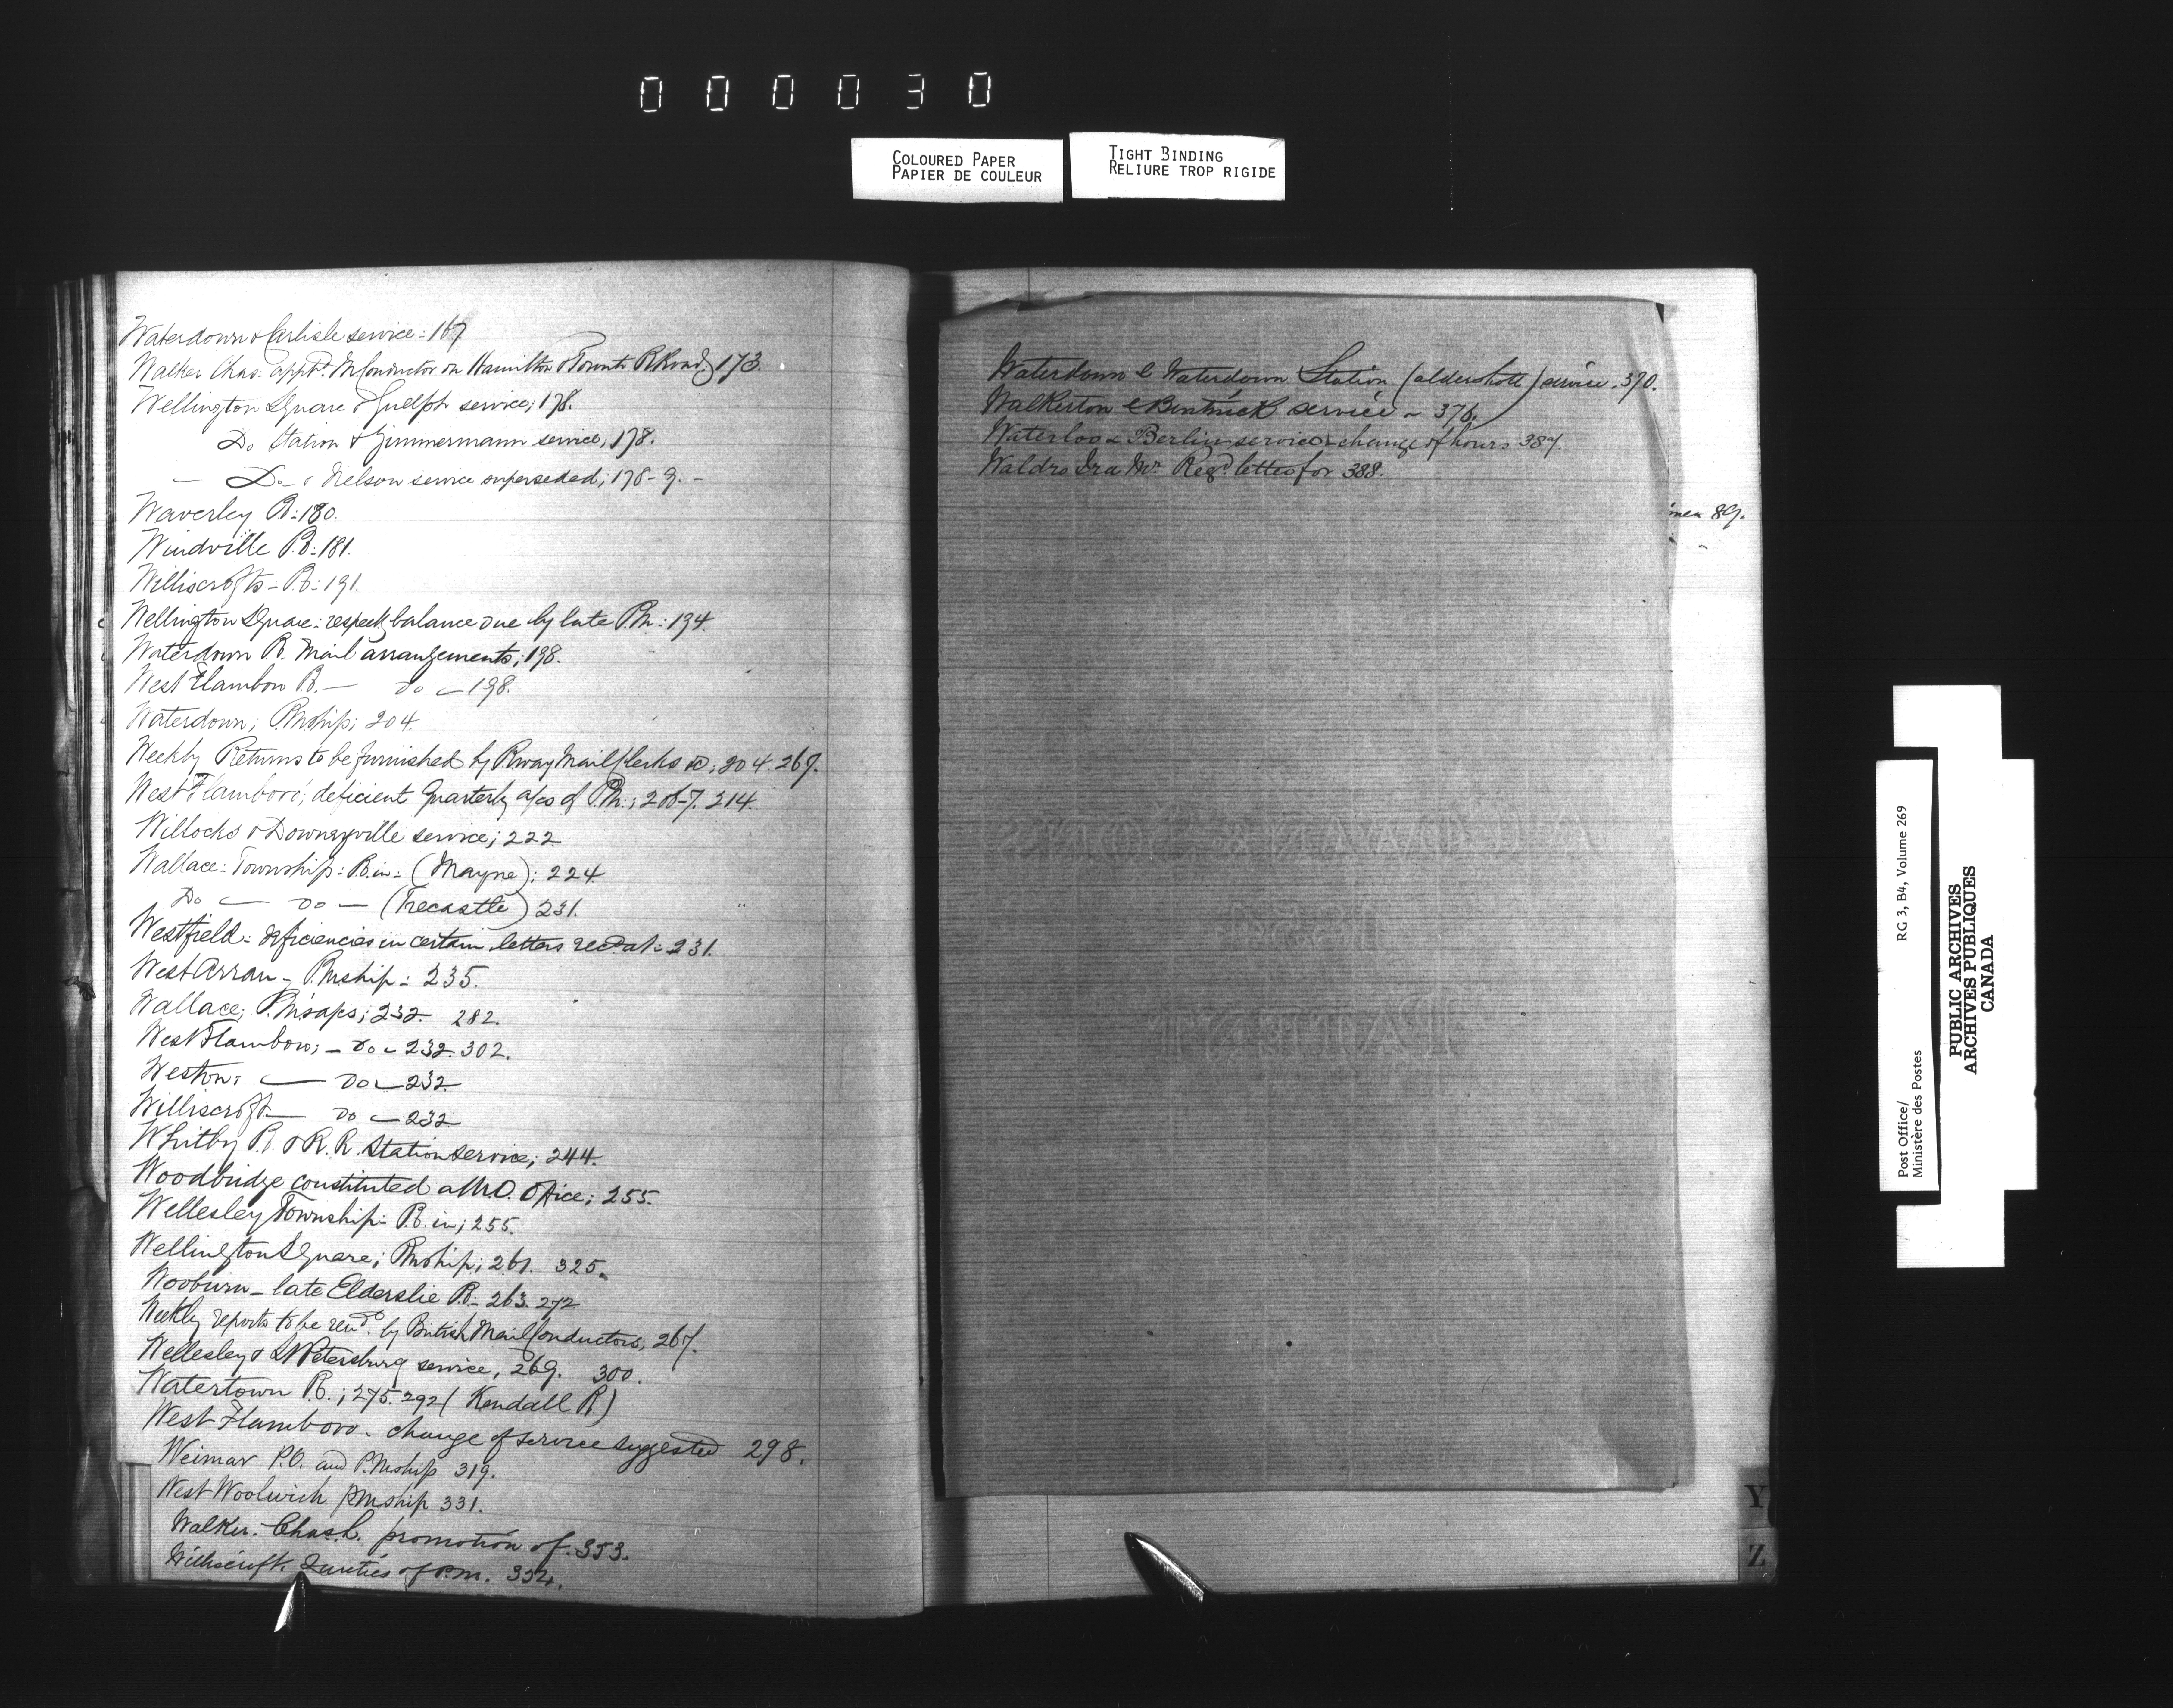 000030
COLOURED PAPER
PAPIER DE COULEUR
TIGHT BINDING
RELIURE TROP RIGIDE
Waterdown & Carlisle service: 167
Walker Chas. app'd. M Conductor on Hamilton & Toronto R Road; 173.
Wellington Square & Guelph service; 178.
Do Station & Zimmermann service; 178.
— Do — & Nelson service superseded; 178-9. —
Waverley P.O: 180.
Windville P.O: 181.
Williscrofts - P.O: 191.
Wellington Square: respect'g balance due by late P.M.: 194.
Waterdown P.O. Mail arrangements; 198.
West Flamboro P.O. — do — 198.
Waterdown; P.Mship; 204.
Weekly Returns to be furnished by Rway Mail Clerks &c; 204. 267.
West Flamboro'; deficient Quarterly a/cs of P.M.; 206-7. 214.
Willocks & Downeyville service; 222
Wallace: Township: P.O. in: (Mayne): 224
Do — do — (Trecastle) 231.
Westfield: deficiencies in certain letters rec'd at: 231.
West Arran - P.Mship: 235.
Wallace; P.M's a/cs; 232. 282.
West Flamboro; — do — 232. 302.
Weston: — do — 232
Williscroft — do — 232
Whitby P.O. & R.R. Station service; 244.
Woodbridge constituted a M.O. Office; 255.
Wellesley Township: P.O. in; 255.
Wellington Square; P.Mship; 261. 325.
Wooburn - late Elderslie P.O: 263. 272
Weekly reports to be ren'd. by British Mail Conductors; 267.
Wellesley & St Petersburg service, 269. 300.
Watertown P.O.; 275. 292 (Kendall P.O.)
West Flamboro. change of service suggested 298.
Weimar P.O. and P.Mship 319.
West Woolwich P.Mship 331.
Walker. Chas. L. promotion of. 353.
Williscroft. Duties of P.M. 354.
Waterdown & Waterdown Station (aldershott) service. 370.
Walkerton & Bentinck service - 376.
Waterloo & Berlin service - change of hours 387.
Waldro Ira Mr. Reg'd. letter for 388.
89.
Y
Z
RG 3, B4, Volume 269
Post Office/
Ministère des Postes
PUBLIC ARCHIVES
ARCHIVES PUBLIQUES
CANADA